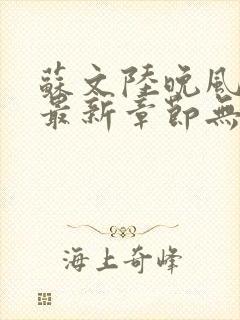 蘇文陸晚風
最新章節無
海上奇峰